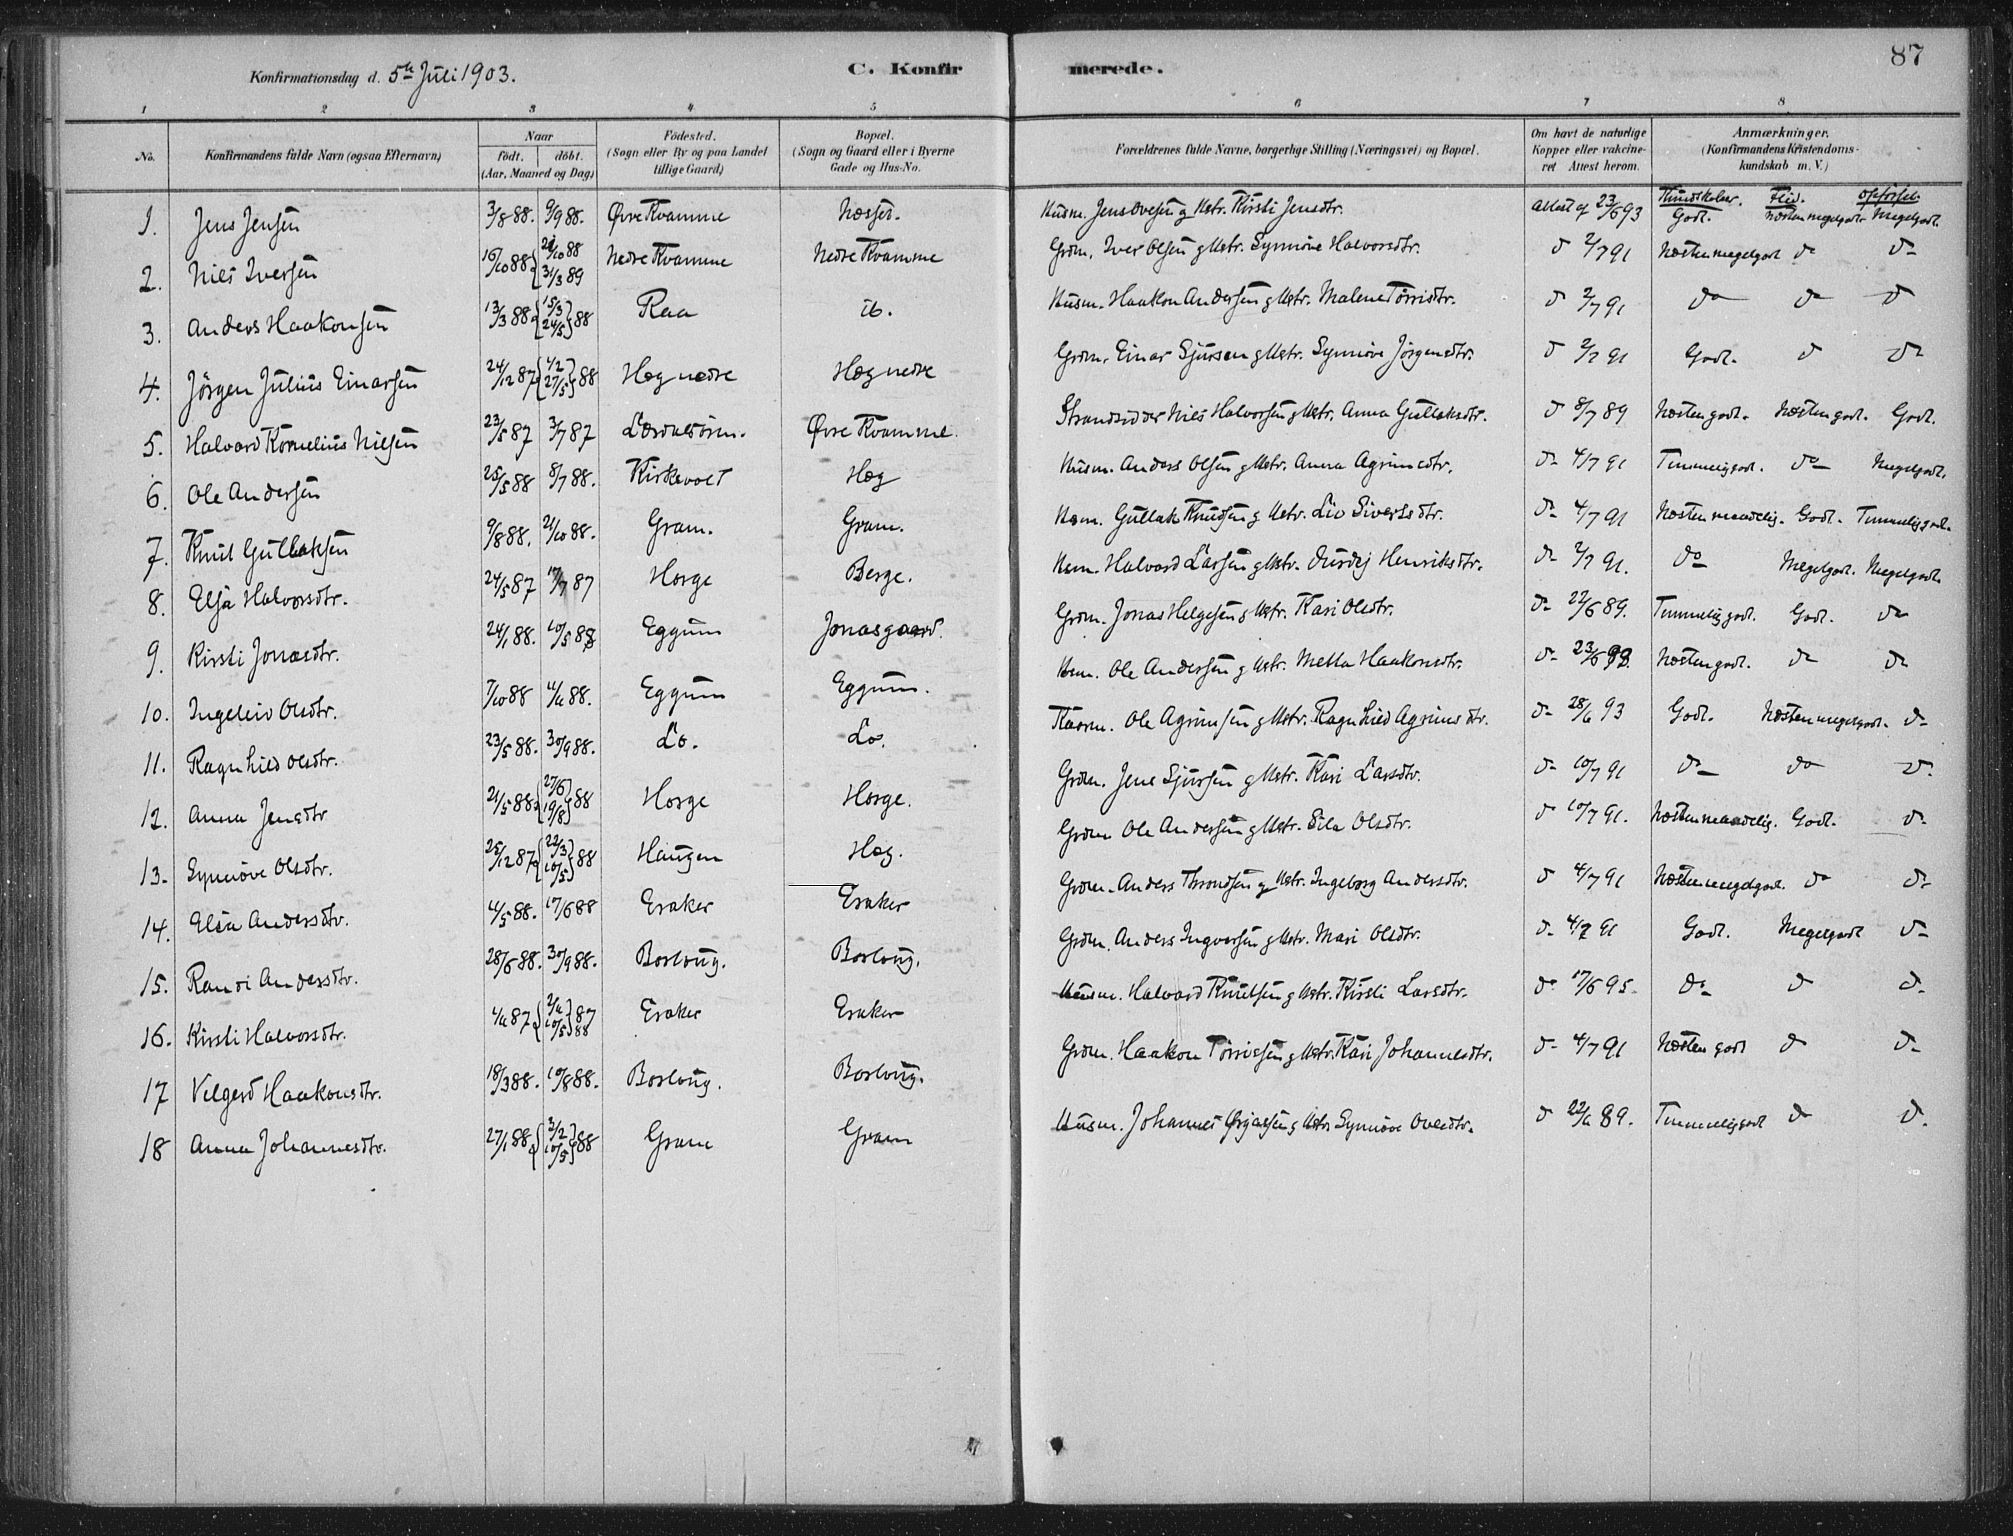 87
Konfirmationsdag d. 5te Juli 1903. C. Konfirmerede.
1 2 3 4 5 6 7 8
No. Konfirmandens fulde Navn (ogsaa Efternavn) Naar födt. döbt. (Aar, Maaned og Dag) Födested. (Sogn eller By og paa Landet tillige Gaard) Bopæl. (Sogn og Gaard eller i Byerne Gade og Hus-No. Forældrenes fulde Navne, borgerlige Stilling (Næringsvei) og Bopæl. Om havt de naturlige Kopper eller vakcineret Attest herom. Anmærkninger. (Konfirmandens Kristendomskundskab m. V.)
Kundskaber. Flid. Opförsel.
1. Jens Jensen 3/8 88. 9/9 88. Øvre Kvamme Næsset. Husm. Jens Ovesen g Kstr. Kirsti Jensdtr. Attest af 23/6 93 Godt. Næsten megetgodt Megetgodt.
2. Nils Iversen 16/10 88 {21/10 88 31/3 89 Nedre Kvamme Nedre Kvamme Grdm. Iver Olsen g Kstr. Synnöve Halvorsdtr. d 2/7 91 Næsten megetgodt do d-
3. Anders Haakonsen 13/3 88 {15/3 24/5} 88 Raa ib. Husm. Haakon Andersen g Kstr. Malene Törrisdtr. d 2/7 91 do do d
4. Jörgen Julius Einarsen 24/12 87 {1/2 27/5} 88 Hæg nedre Hæg nedre Grdm. Einar Sjursen g Kstr. Synnöve Jörgensdtr. d 2/7 91 Godt. d do
5. Halvard Kornelius Nilsen 23/5 87 3/7 87 Lærdalsören. Øvre Kvamme. Strandsidder Nils Halvorsen g Kstr. Anna Gullaksdtr. d 8/7 89 Næsten godt. Næsten godt. Godt.
6. Ole Andersen 25/5 88 8/7 88. Kirkevolt Hæg Husm. Anders Olsen g Kstr. Anna Agrimsdtr. d- 4/7 91 Temmelig godt. do Megetgodt.
7. Knut Gullaksen 9/8 88. 21/10 88. Gram. Gram. Hsm. Gullak Knudsen g Kstr. Liv Sivertsdtr. d- 4/7 91 Næsten maadelig. Godt. Temmelig godt.
8. Elsa Halvorsdtr. 24/5 87 17/7 87 Horge Berge. Hsm. Halvard Larsen g Kstr. Durdej Henriksdtr. d- 2/7 91. do Megetgodt. Megetgodt.
9. Kirsti Jonasdtr. 24/1 88. 10/5 88 Eggum Jonasgaard. Grdm. Jonas Helgesen g Kstr. Kari Olsdtr. d- 22/6 89. Temmelig godt. Godt. do
10. Ingeleiv Olsdtr. 7/10 88 4/11 88. Eggum Eggum. Hsm. Ole Andersen g Kstr. Metta Haakonsdtr. d- 23/6 93. Næsten godt. do do
11. Ragnhild Olsdtr. 23/5 88. 30/9 88. Lo. Lo. Ole Agrimsen g Kstr. Ragnhild Agrimsdtr. d- 28/6 93 Godt. Næsten megetgodt. d-
12. Anna Jensdtr 21/5 88 {27/6 19/8} 88 Horge Horge. Grdm. Jens Sjursen g Kstr. Kari Larsdtr. d- 10/7 91 do do d-
13. Synnöve Olsdtr. 25/12 87 {22/3 10/5} 88 Haugen Hæg. Grdm Ole Andersen g Kstr. Sila Olsdtr. d 10/7 91. Næsten maadelig. Godt. d-
14. Elsa Andersdtr. 4/5 88. 17/6 88 Eraker Eraker Grdm. Anders Throndsen g Kstr. Ingeborg Andersdtr. d 4/7 91 Næsten megetgodt. do d-
15. Randi Andersdtr. 28/6 88. 30/9 88. Borlaug. Borlaug. Grdm. Anders Ingvarsen g Kstr. Mari Olsdtr. d- 4/7 91 Godt. Megetgodt d-
16. Kirsti Halvorsdtr. 4/11 87 {2/11 87 10/5 88 Eraker Eraker Husm. Halvard Knutsen g Kstr. Kirsti Larsdtr. do 17/6 95. do d d-
17 Velgerd Haakonsdtr. 18/3 88. 10/8 88. Borlaug. Borlaug. Grdm. Haakon Törrissen g Kstr. Kari Johannesdtr. d- 4/7 91 Næsten godt d d-
18 Anna Johannesdtr. 27/1 88 {3/2 10/5} 88 Gram Gram Husm. Johannes Ørjasen g Kstr Synnöve Olsdtr. d 22/6 89. Temmelig godt d d.